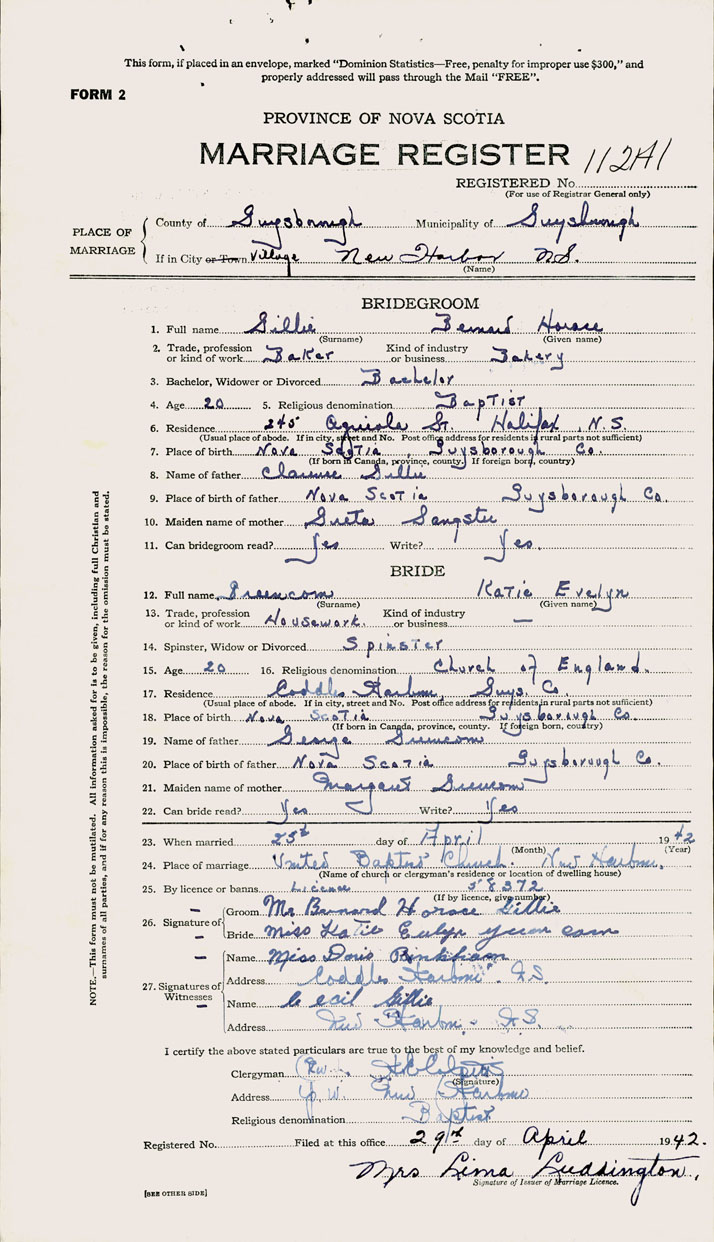 This form, if placed in an envelope, marked "Dominion Statistics—Free, penalty for improper use $300," and
properly addressed will pass through the Mail "FREE".
FORM 2
PROVINCE OF NOVA SCOTIA
MARRIAGE REGISTER 112A1
REGISTERED No.
(For use of Registrar General only)
PLACE OF MARRIAGE
County of Guysborough Municipality of Guysborough
If in City or Town Village New Harbor N.S.
(Name)
BRIDEGROOM
1. Full name Gillie Bernard Horace
(Surname) (Given name)
2. Trade, profession or kind of work Baker Kind of industry or business Bakery
3. Bachelor, Widower or Divorced Bachelor
4. Age 20 5. Religious denomination Baptist
6. Residence 245 St. Halifax, N.S.
(Usual place of abode. If in city, street and No. Post office address for residents in rural parts not sufficient)
7. Place of birth Nova Scotia, Guysborough Co.
(If born in Canada, province, county. If foreign born, country)
8. Name of father Clarence Gillie
9. Place of birth of father Nova Scotia Guysborough Co.
10. Maiden name of mother Greta Sangster
11. Can bridegroom read? Yes Write? Yes.
BRIDE
12. Full name Katie Evelyn
(Surname) (Given name)
13. Trade, profession or kind of work Housework. Kind of industry or business —
14. Spinster, Widow or Divorced Spinster
15. Age 20 16. Religious denomination Church of England.
17. Residence Coddles Harbour, Guys. Co.
(Usual place of abode. If in city, street and No. Post office address for residents in rural parts not sufficient)
18. Place of birth Nova Scotia Guysborough Co.
(If born in Canada, province, county. If foreign born, country)
19. Name of father George
20. Place of birth of father Nova Scotia Guysborough Co.
21. Maiden name of mother Margaret
22. Can bride read? Yes Write? Yes
23. When married 25th day of April 1942
(Month) (Year)
24. Place of marriage United Baptist Church. New Harbour.
(Name of church or clergyman's residence or location of dwelling house)
25. By licence or banns License 58372
(If by licence, give number)
26. Signature of
Groom Mr Barnard Horace Gillie
Bride Miss Katie Evelyn
27. Signatures of Witnesses
Name Miss Doris Pinkham
Address Coddles Harbour N.S.
Name Cecil Gillie
Address New Harbour N.S.
I certify the above stated particulars are true to the best of my knowledge and belief.
Clergyman (Rev.)
(Signature)
Address New Harbour
Religious denomination Baptist
Registered No. Filed at this office 29th day of April 1942.
Mrs Lima Luddington,
Signature of Issuer of Marriage Licence.
[SEE OTHER SIDE]
NOTE.—This form must not be mutilated. All information asked for is to be given, including full Christian and
surnames of all parties, and if for any reason this is impossible, the reason for the omission must be stated.